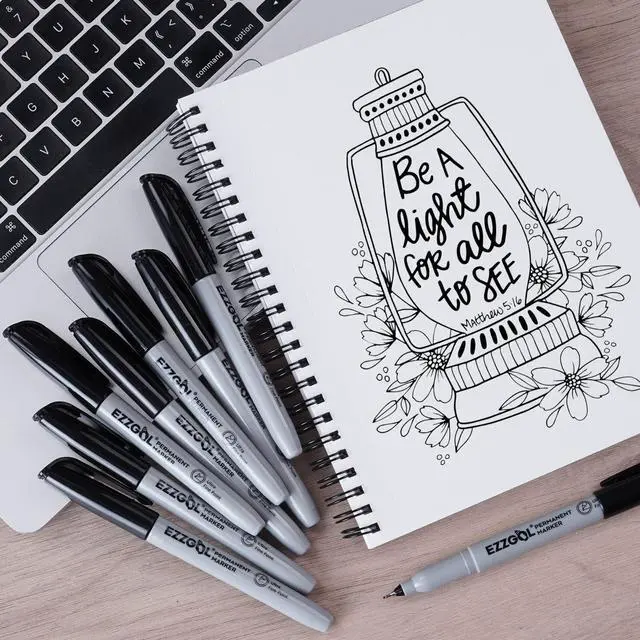 Be A
light
for all
to SEE
Matthew 5:16
EZZGOL PERMANENT
MARKER
EZZGOL
EZZGOL PERMANENT
MARKER
EZZGOL PERMANENT
MARKER
EZZGOL PERMANENT
MARKER
EZZGOL PERMANENT
MARKER
Ultra
Fine Point
EZZGOL PERMANENT
MARKER
command
option
command
command
G
H
J
K
L
V
B
N
M